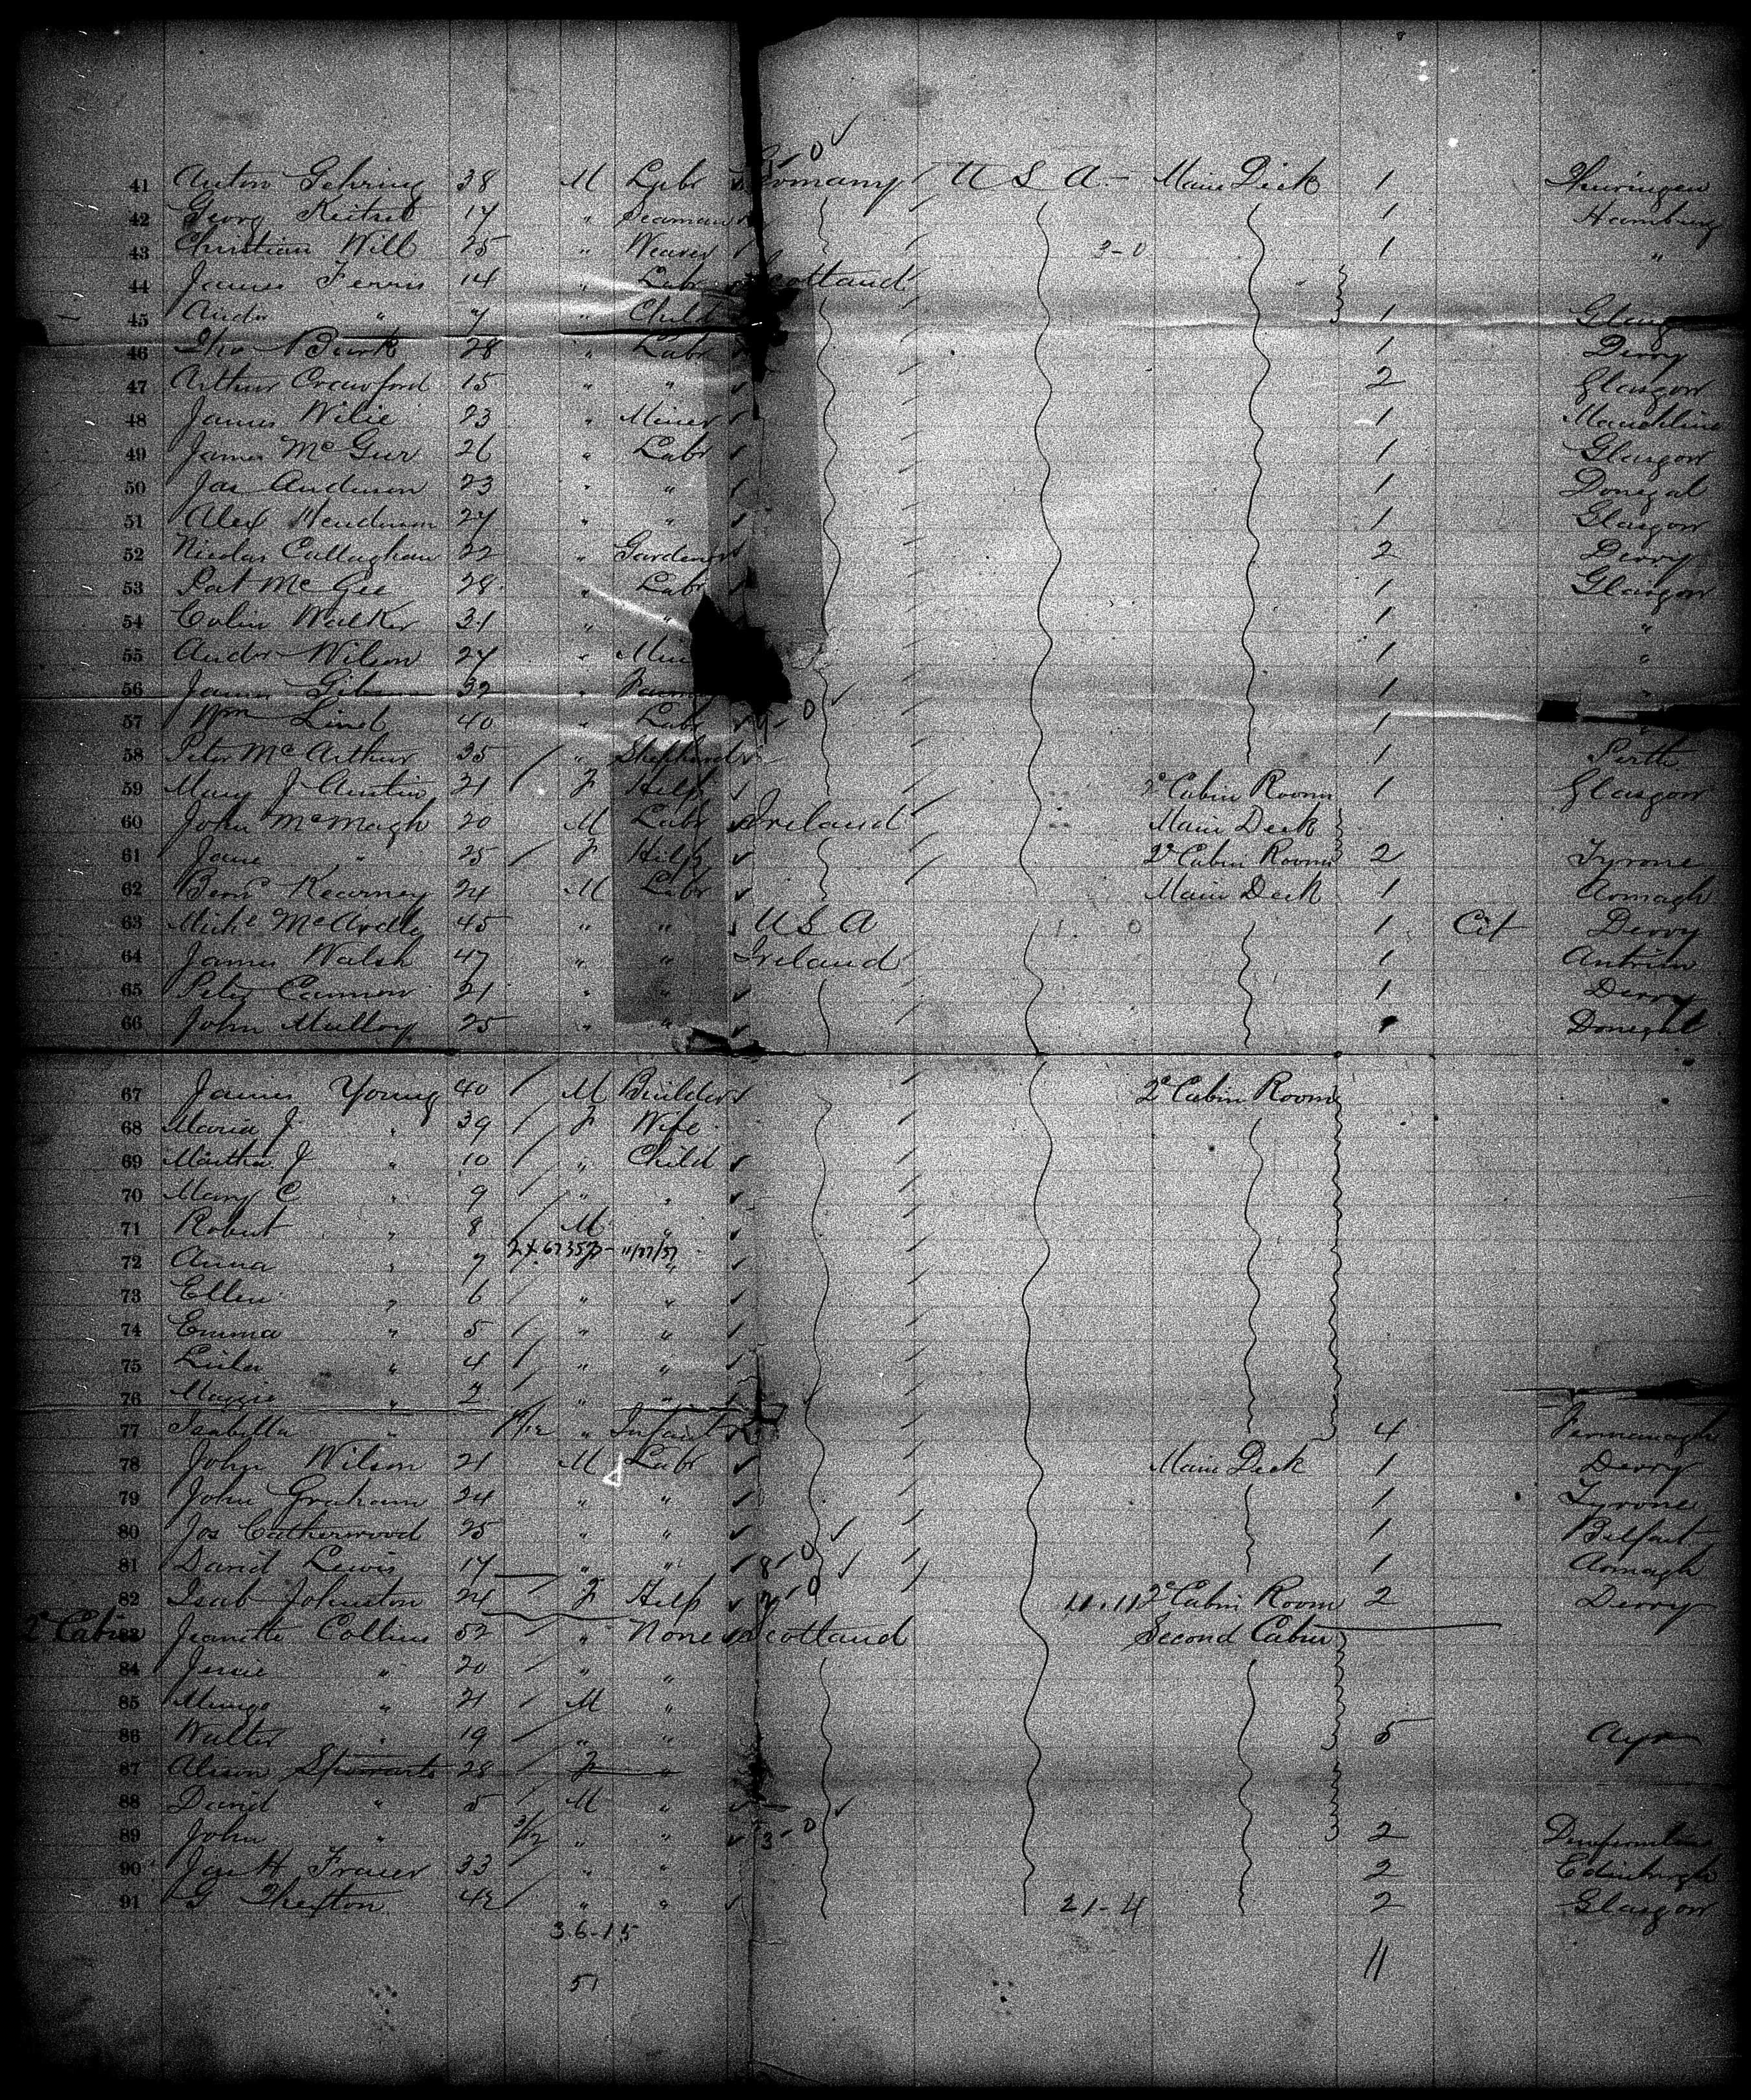 41 Anton Gehring 38 M Labr Germany U S A - Main Deck 1 Thuringen
42 Georg 17 " Seaman 1 Hamburg
43 Christian Will 25 " Weaver 3-0 1 "
44 James Ferris 14 " Labr Scotland
45 Andr " 7 " Child 1 Glasg
46 Tho Burk 28 " Labr 1 Derry
47 Arthur Crawford 15 " " 2 Glasgow
48 James Wilie 23 " Miner 1 Mauchline
49 James McGur 26 " Labr 1 Glasgow
50 Jas Anderson 23 " " 1 Donegal
51 Alex Henderson 27 " " 1 Glasgow
52 Nicolas Callaghan 22 " Gardener 2 Derry
53 Pat McGee 28 " Labr 1 Glasgow
54 Colin Walker 31 " " 1 "
55 Andr Wilson 27 " Min 1 "
56 James Gibson 32 " Farmer 1 "
57 Wm 40 " Labr 1 "
58 Peter McArthur 35 " Shepherd 1 Perth
59 Mary J Austin 21 F Help 2d Cabin Room 1 Glasgow
60 John McMagh 20 M Labr Ireland Main Deck
61 Jane " 25 F Help 2d Cabin Room 2 Tyrone
62 Bernd Kearney 24 M Labr Main Deck 1 Armagh
63 Michl McArdle 45 " " U S A 1 Cit Derry
64 James Walsh 47 " " Ireland 1 Antrim
65 Peter Cannon 21 " " 1 Derry
66 John Mulloy 25 " " 1 Donegal
67 James Young 40 M Builder 2d Cabin Room
68 Maria J " 39 F Wife
69 Martha J " 10 " Child
70 Mary C " 9 " "
71 Robert " 8 M "
72 Anna " 7 2X-67357- 11/27/37 "
73 Ellen " 6 " "
74 Emma " 5 " "
75 " 4 " "
76 Maggie " 2 " "
77 Isabella " " Infant 4 Fermanagh
78 John Wilson 21 M Labr Main Deck 1 Derry
79 John Graham 24 " " 1 Tyrone
80 Jos Catherwood 25 " " 1 Belfast
81 David Lewis 17 " " 8-0 1 Armagh
82 Isab Johnston 24 F Help 11.11 2d Cabin Room 2 Derry
2d Cabin 83 Jeanette Collins 52 " None Scotland Second Cabin
84 Jessie " 20 " "
85 Mungo " 21 M "
86 Walter " 19 " " 5 Ayr
87 Alison Stewart 28 F "
88 David " 5 M "
89 John " 3/12 " " 3-0 2 Dunfermline
90 Jas H Fraser 33 " " 2 Edinburgh
91 G 42 " " 21-4 2 Glasgow
36-15
51
11